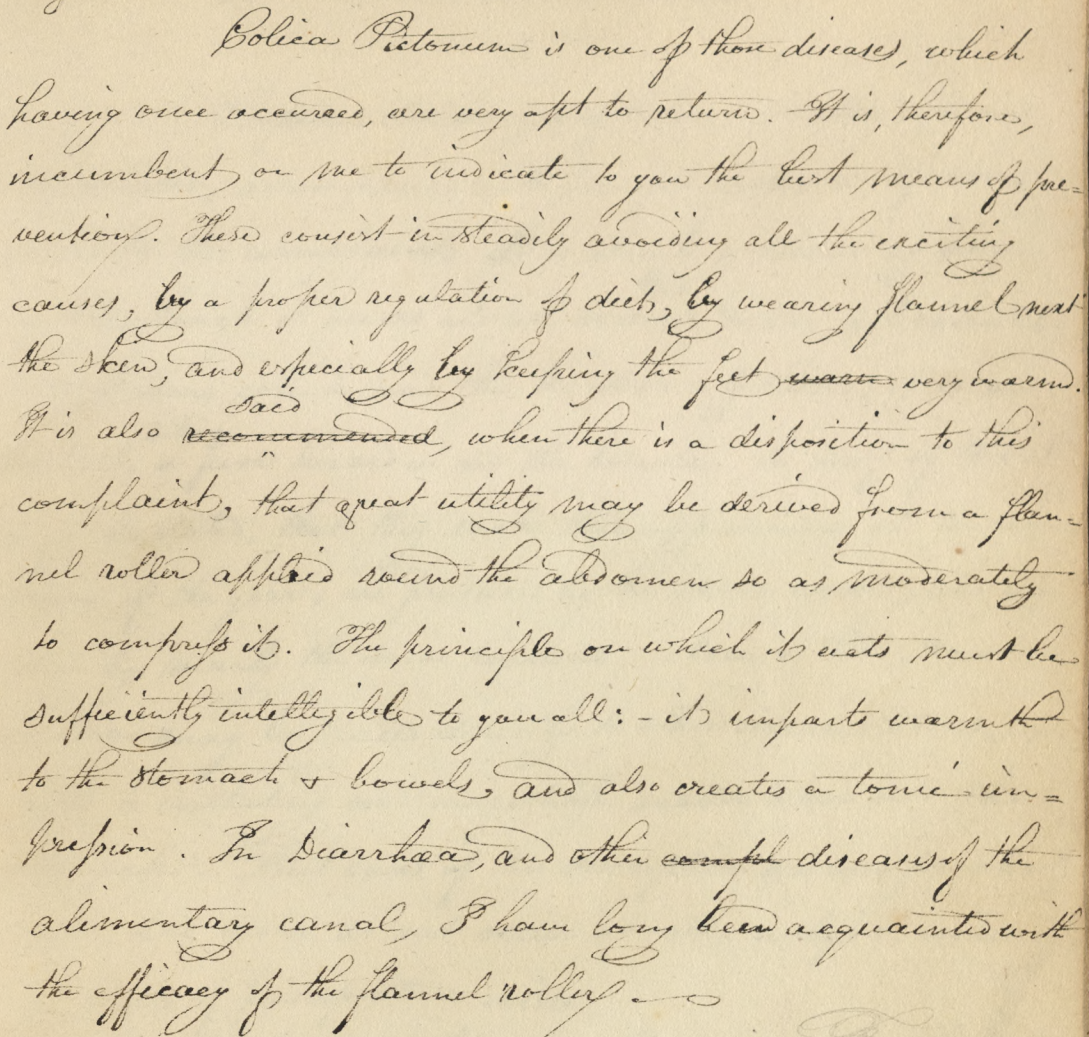 Colica Pictonum is one of those diseases, which
having once occurred, are very apt to return. It is, therefore,
incumbent on me to indicate to you the best means of pre=
vention. These consist in steadily avoiding all the exciting
causes, by a proper regulation of diet, by wearing flannel next
the skin, and especially by keeping the feet warm very warm.
said
It is also recommended, when there is a disposition to this
complaint, that great utility may be derived from a flan=
nel roller applied round the abdomen so as moderately
to compress it. The principle on which it acts must be
sufficiently intelligible to you all: - it imparts warmth
to the stomach & bowels, and also creates a tonic im=
pression. In Diarrhœa, and other compl diseases of the
alimentary canal, I have long been acquainted with
the efficacy of the flannel roller. —